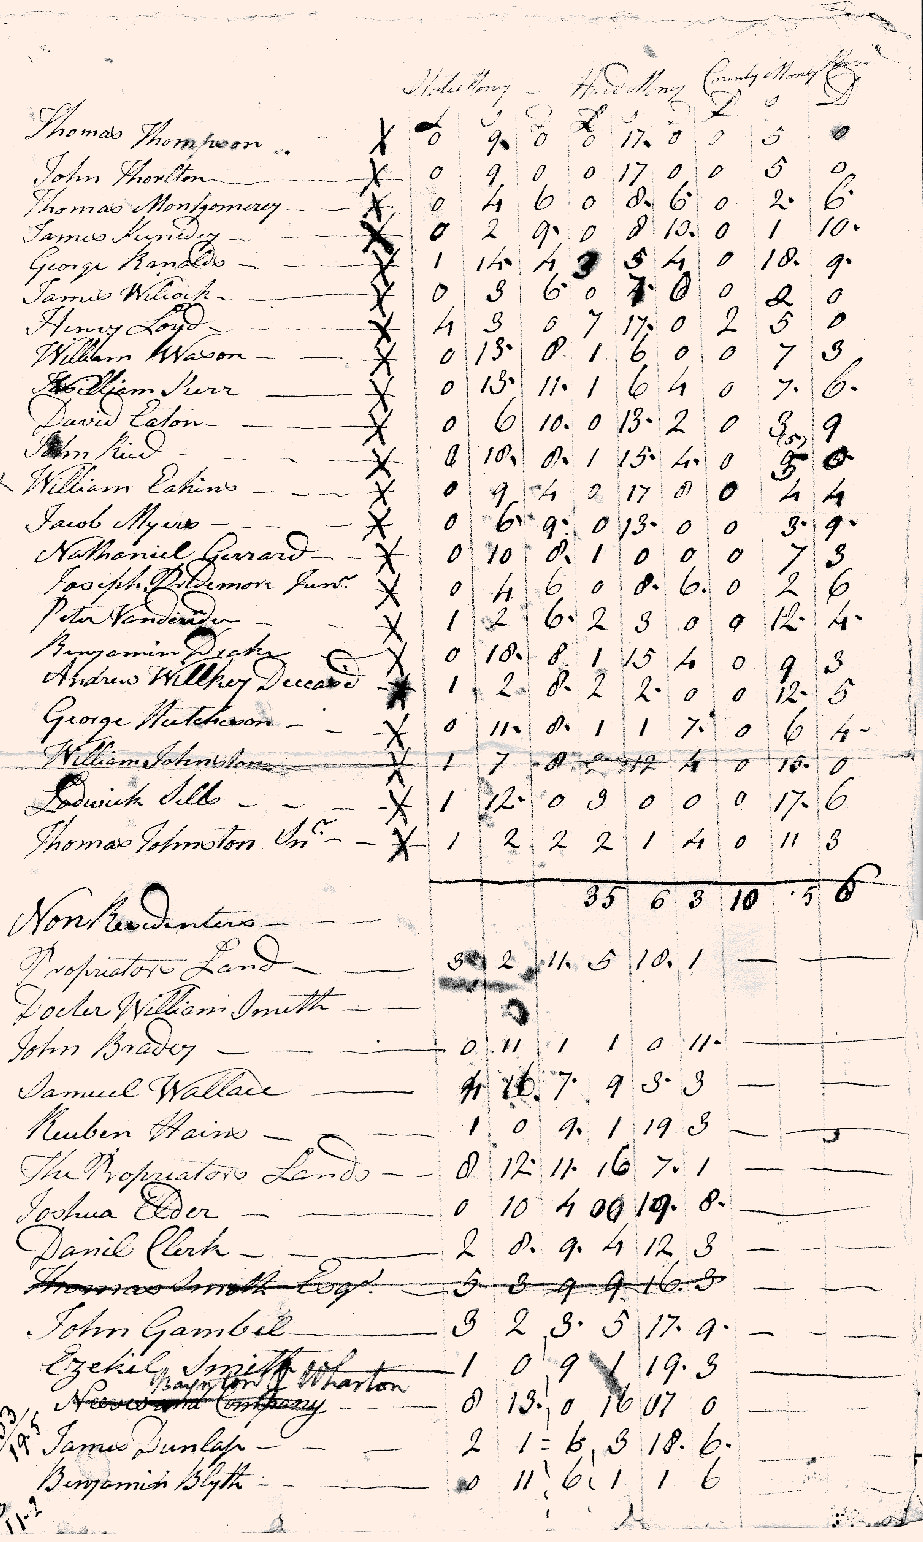 State Mony - Hard Mony County Money
£ S D £ S D £ S D
Thomas Thompson X 0 9 0 0 17 0 0 5 0
John Thorlton X 0 9 0 0 17 0 0 5 0
Thomas Montgomerey X 0 4 6 0 8 6 0 2 6
James Kenedey X 0 2 9 0 8 10 0 1 10
George Ranalds X 1 14 4 3 5 4 0 18 9
James Wilcock X 0 3 6 0 7 6 0 2 0
Henry Loyd X 4 3 0 7 17 0 2 5 0
William Wason X 0 13 8 1 6 0 0 7 3
William Kerr X 0 13 11 1 6 4 0 7 6
David Eaton X 0 6 10 0 13 2 0 3 9
John Ried X 0 18 8 1 15 4 0
William Eakins X 0 9 4 0 17 8 0 4 4
Jacob Myers X 0 6 9 0 13 0 0 3 9
Nathaniel Gerrard X 0 10 8 1 0 0 0 7 3
Joseph Junr X 0 4 6 0 8 6 0 2 6
Peter X 1 2 6 2 3 0 0 12 4
Benjamin X 0 18 8 1 15 4 0 9 3
Andrew Willkey Deceasd X 1 2 8 2 2 0 0 12 5
George Hutcheson X 0 11 8 1 1 7 0 6 4
William Johnston X 1 7 8 2 12 4 0 15 0
Lodwick Sills X 1 12 0 3 0 0 0 17 6
Thomas Johnston Snr X 1 2 2 2 1 4 0 11 3
35 6 3 10 5 6
Non Residenters
Propriators Land 3 2 11 5 18 1
Docter William Smith
John Bradey 0 11 1 1 0 11
Samuel Wallace 4 16 7 9 3 3
Reuben Hains 1 0 9 1 19 3
The Propriators Lands 8 12 11 16 7 1
Joshua Elder 0 10 4 00 19 8
Danil Clerk 2 8 9 4 12 3
Thomas Smith Esqr 5 3 9 9 16 3
John Gambel 3 2 3 5 17 9
Ezekiel Smith 1 0 9 1 19 3
Baynton & Wharton
Company 8 13 0 16 07 0
19 5
James Dunlap 2 1 6 3 18 6
Benjamin Blyth 0 11 6 1 1 6
11-2